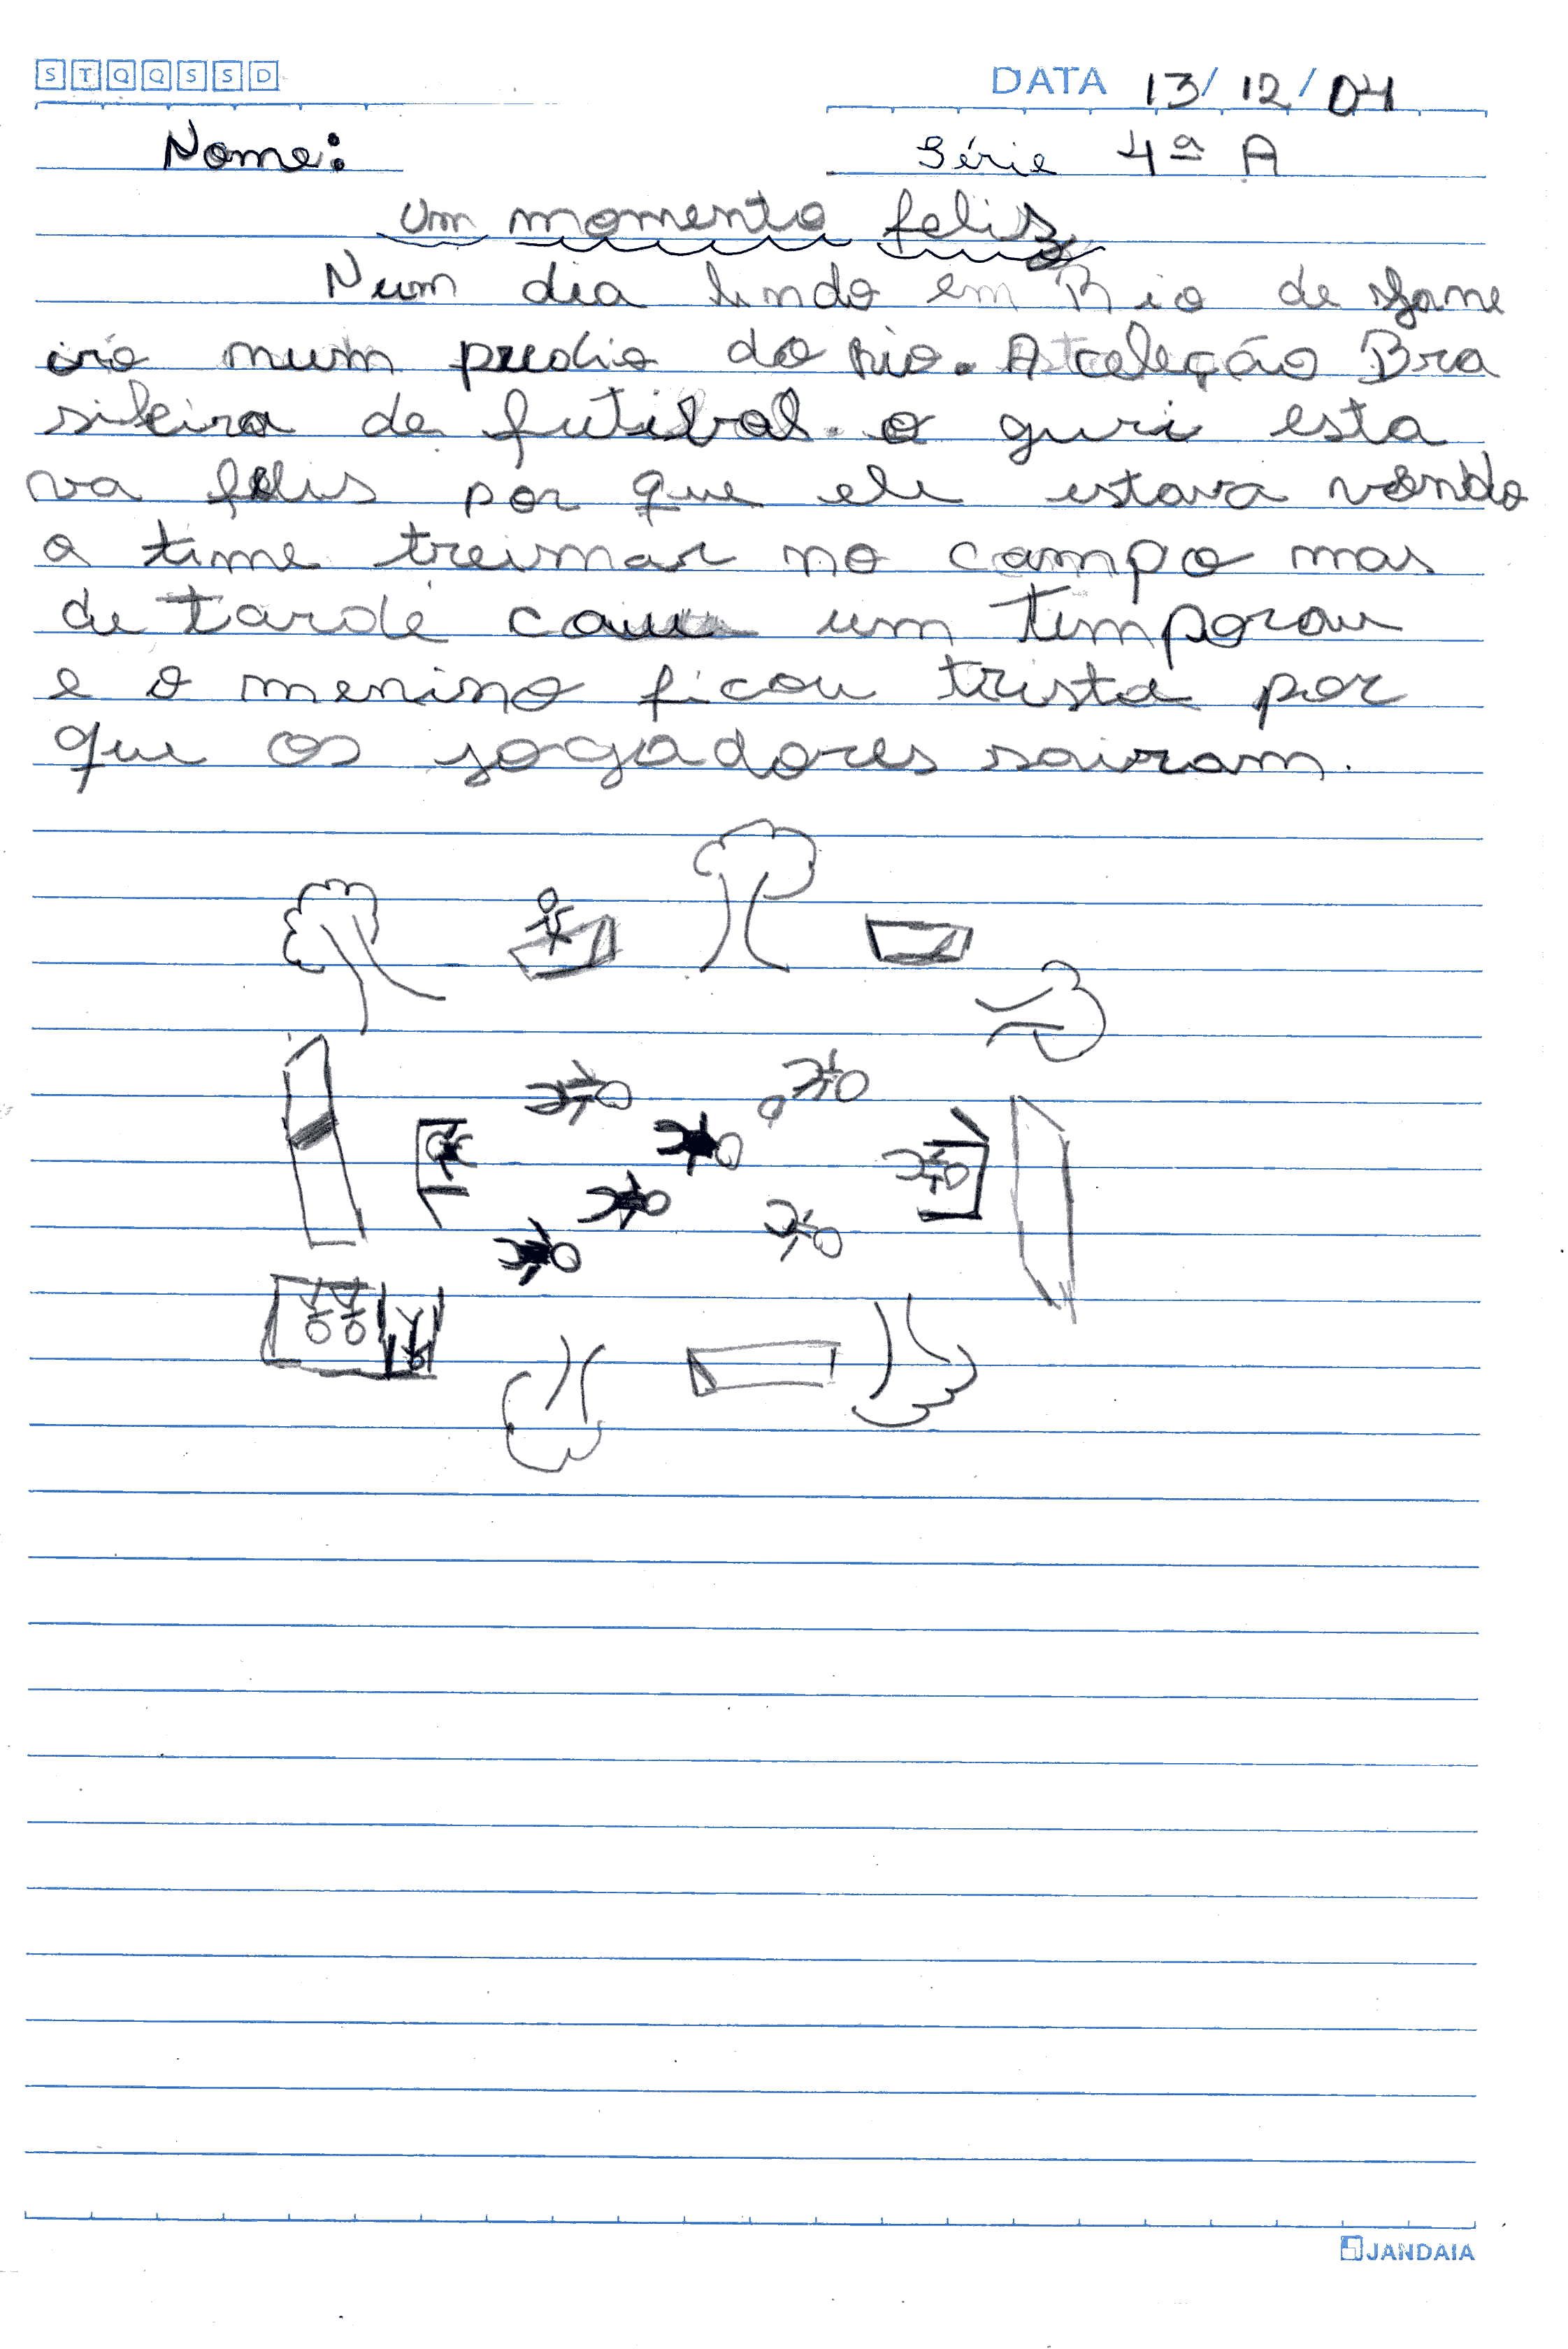 S T Q Q S S D
DATA 13/12/04
Nome:
Série 4ª A
Um momento felis
Num dia lindo em Rio de Jane
iro num predio do Rio. A celeção Bra
sileira de futibol. o guri esta
va felis por que ele estava vendo
o time treinar no campo mas
de tarde caiu um temporau
e o menino ficou triste por
que os jogadores sairam.
JANDAIA